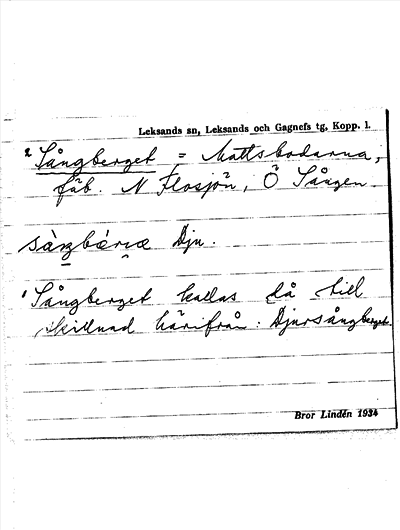 Leksands sn, Leksands och Gagnefs tg, Kopp. l.
2 Sångberget = Mattsbodarna,
fäb. N Flosjön, Ö Sången
Dju.
1 Sångberget kallas då till
skillnad härifrån: Djursångberget.
Bror Lindén 1934